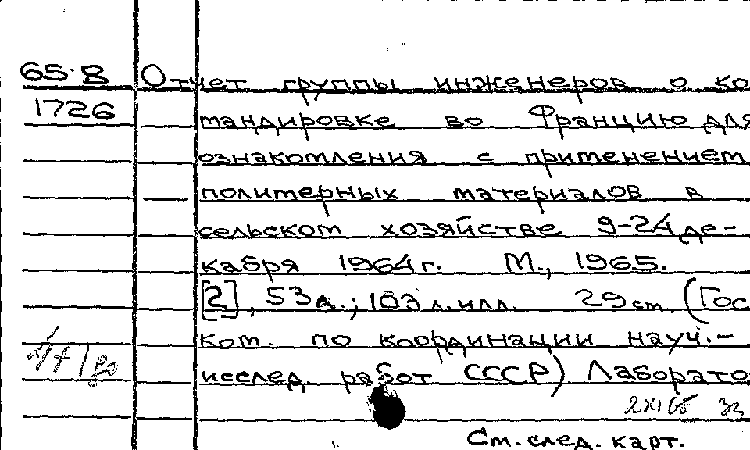 65-В
1726
Отчет группы инженеров о ко
мандировке во Францию для
ознакомления с применением
полимерных материалов в
сельском хозяйстве 9-24 де-
кабря 1964 г. М., 1965.
[2], 53 л.; 103 л. илл. 29 см. (Гос
ком. по координации науч.-
исслед. работ СССР) Лаборато
См. след. карт.